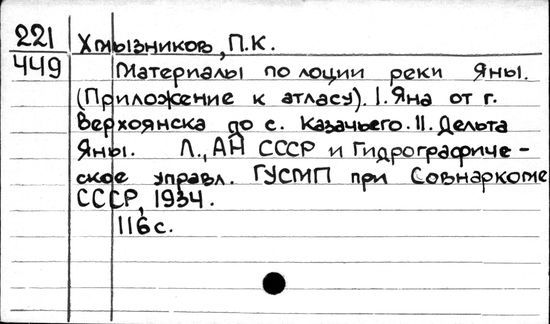 221 Хмызников, П.К.
449 Материалы по лоции реки Яны.
(Приложение к атласу). I. Яна от г.
Верхоянска до с. Казачьего. II. Дельта
Яны. Л., АН СССР и Гидрографиче-
ское управл. ГУСМП при Совнаркоме
СССР, 1934.
116 с.